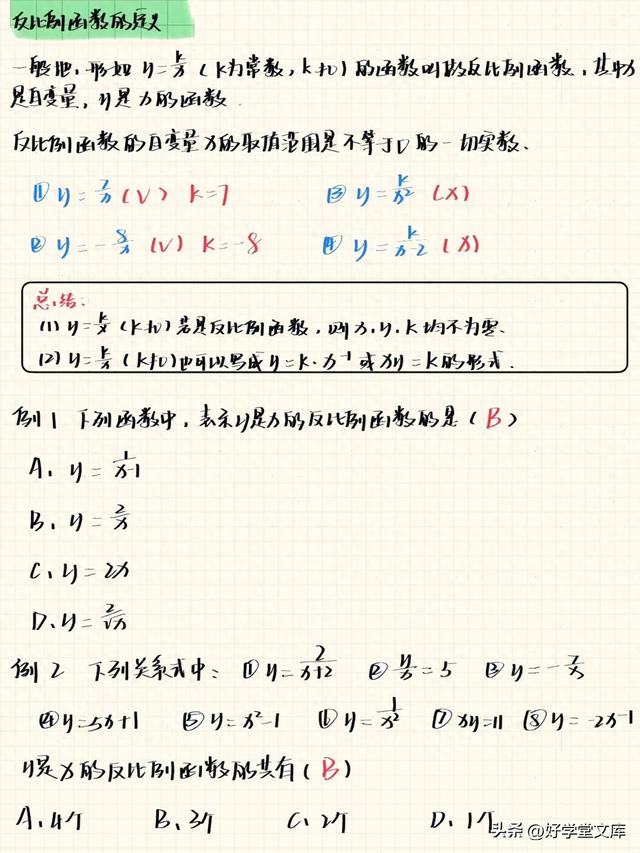 反比例函数的定义
一般地，形如 y = k/x （k为常数，k≠0）的函数叫做反比例函数，其中x
是自变量，y是x的函数.
反比例函数的自变量x的取值范围是不等于0的一切实数.
① y = 7/x (√) k=7 ③ y = k/x² (×)
② y = -8/x (√) k=-8 ④ y = k/x-2 (×)
总结:
(1) y = k/x (k≠0) 若是反比例函数，则 x、y、k 均不为零.
(2) y = k/x (k≠0) 也可以写成 y = k·x⁻¹ 或 xy = k 的形式.
例1 下列函数中，表示y是x的反比例函数的是（B）
A、y = 1/x-1
B、y = 2/x
C、y = 2x
D、y = 2/√x
例2 下列关系式中: ① y = 2/x+2 ② y/x = 5 ③ y = -7/x
④ y = 5x+1 ⑤ y = x²-1 ⑥ y = 1/x² ⑦ xy = 11 ⑧ y = -2x⁻¹
y是x的反比例函数的共有（B）
A、4个 B、3个 C、2个 D、1个
头条 @好学堂文库